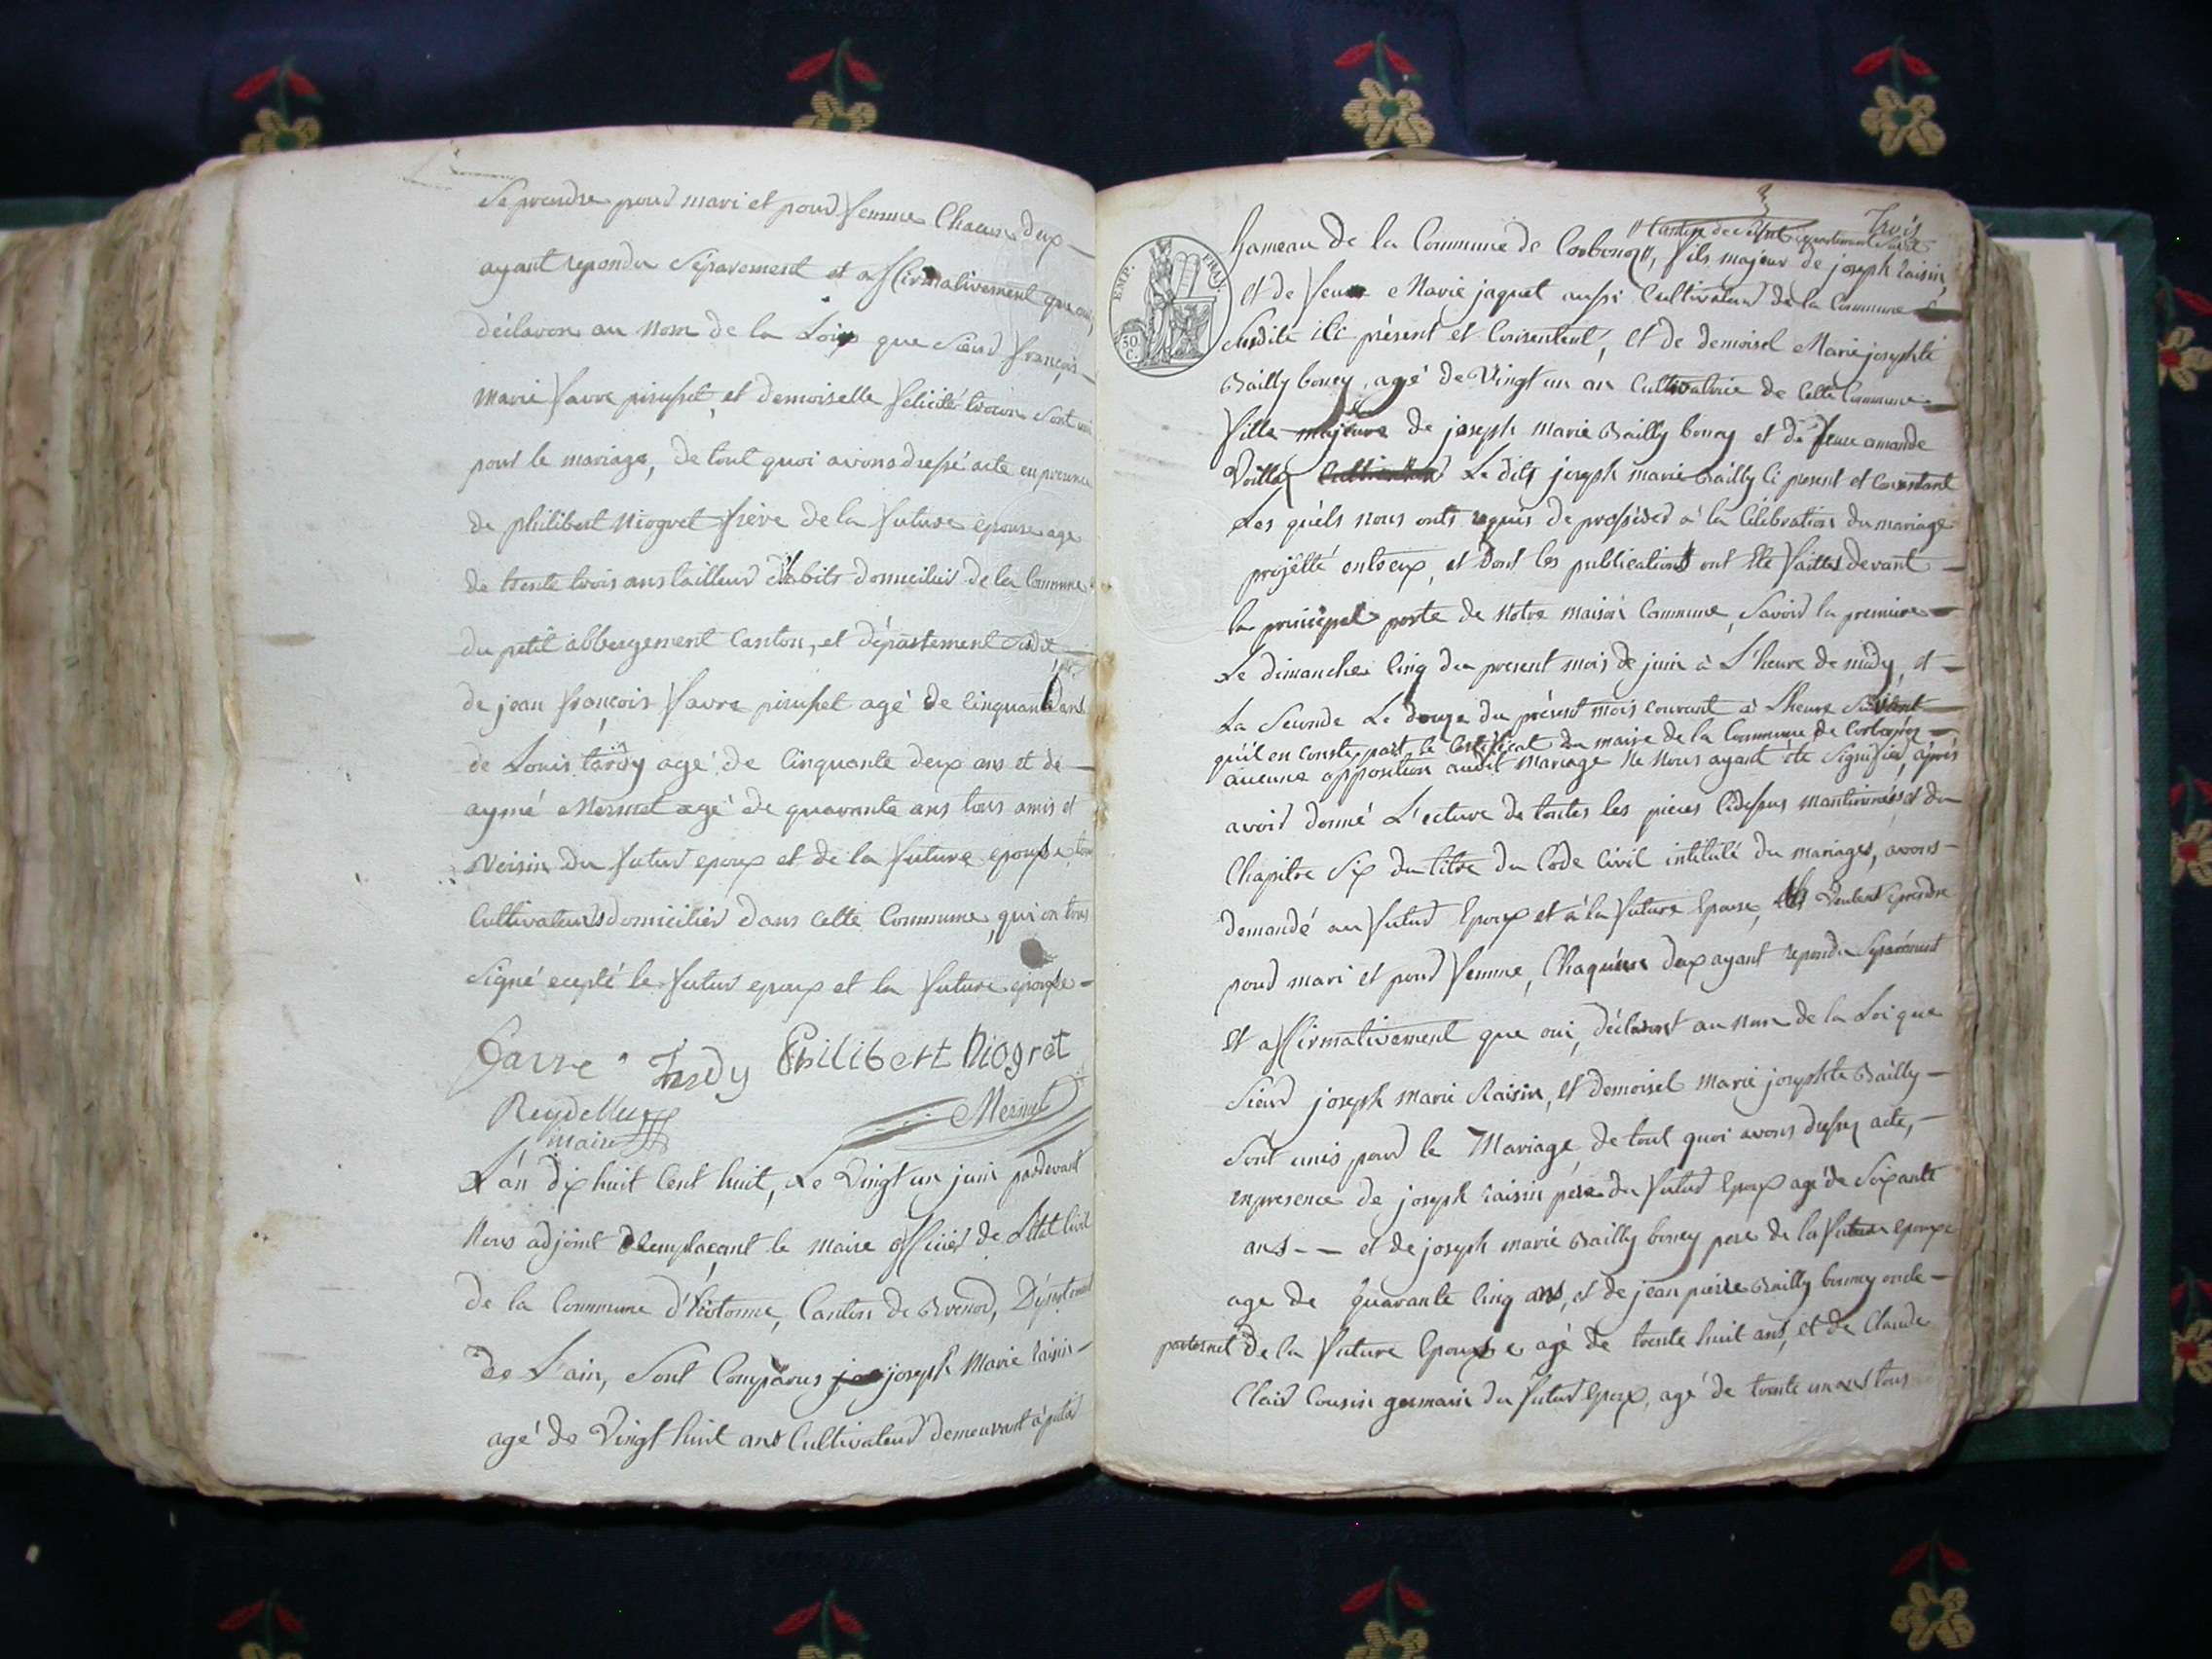 Se prendre pour mari et pour femme Chacun deux
ayant repondu Séparement et affirmativement que oui,
déclaron au nom de la Loix que Sieur françois
Marie favre pirusset, et demoiselle felicité Sont unis
pour le mariage, de tout quoi avons dressé acte en presence
de philibert Niogret frère de la future epouse age
de trente trois ans tailleur d'habits domicilier de la Commune
du petit abbergement Canton, et département Sudit
de jean françois favre pirusset agé de Cinquante ans
de Louis tardy agé de Cinquante deux ans et de
aymé Mermet agé de quarante ans tous amis et
Voisin du futur epoux et de la future epouse tous
Cultivateurs domicilier dans Cette Commune, qui on tous
Signé ecepté le futur epoux et la future epouse
favre Tardy Philibert Niogret
Reydellet Mermet
maire
L'an dix huit Cent huit, Le Vingt un juin pardevant
Nous adjoint Remplaçant le Maire officier de L'Etat Civil
de la Commune d'hotonne, Canton de Brenod, Département
de L'ain, Sont Comparus joseph Marie raisin
agé de Vingt huit ans Cultivateur demeurant à
3
Trois
hameau de la Commune de Corbonoz, fils majeur de joseph raisin,
et de feue Marie jaquet aussi Cultivateur de la Commune
Susdite ici présent et Consentent, et de demoisel Marie josephte
Bailly boney, agé de Vingt un an Cultivatrice de Cette Commune
fille majeure de joseph Marie Bailly boney et de feue amande
Le dits joseph marie Bailly Ci present et Consentant
Les quels nous onts requis de prosséder à la Célébration du mariage
projetté entreux, et dont les publications ont été faittes devant
la principal porte de notre maison Commune, Savoir la premiere
Le dimanche Cinq du present mois de juin à L'heure de midy, et
La Seconde Le douze du présent mois courant à Lheure
qu'il en conste, part le Certificat du maire de la Commune de Corbonoz
aucune opposition audit mariage ne nous ayant été Signifier, après
avoir donné L'ecture de toutes les pieces Cidessus mantionnées, et du
Chapitre Six du titre du Code Civil intitulé du mariages, avons
demandé au futur Epoux et à la future Epouse, Veulent Se prendre
pour mari et pour femme, Chaqu'un deux ayant repondu Séparément
et affirmativement que oui, déclaront au nom de la Loi que
Sieur joseph marie Raisin, et demoisel Marie josephte Bailly
Sont unis pour le Mariage, de tout quoi avons dressez acte,
en presence de joseph raisin pere du futur Epoux agé de Soixante
ans - - et de joseph marie Bailly boney pere de la future epouse
age de quarante Cinq ans, et de jean pierre Bailly bonney oncle
paternel de la future Epouse agé de trente huit ans, et de Claude
Clair Cousin germain du futur Epoux, agé de trente un ans tous
EMP. FRAN.
50 C.